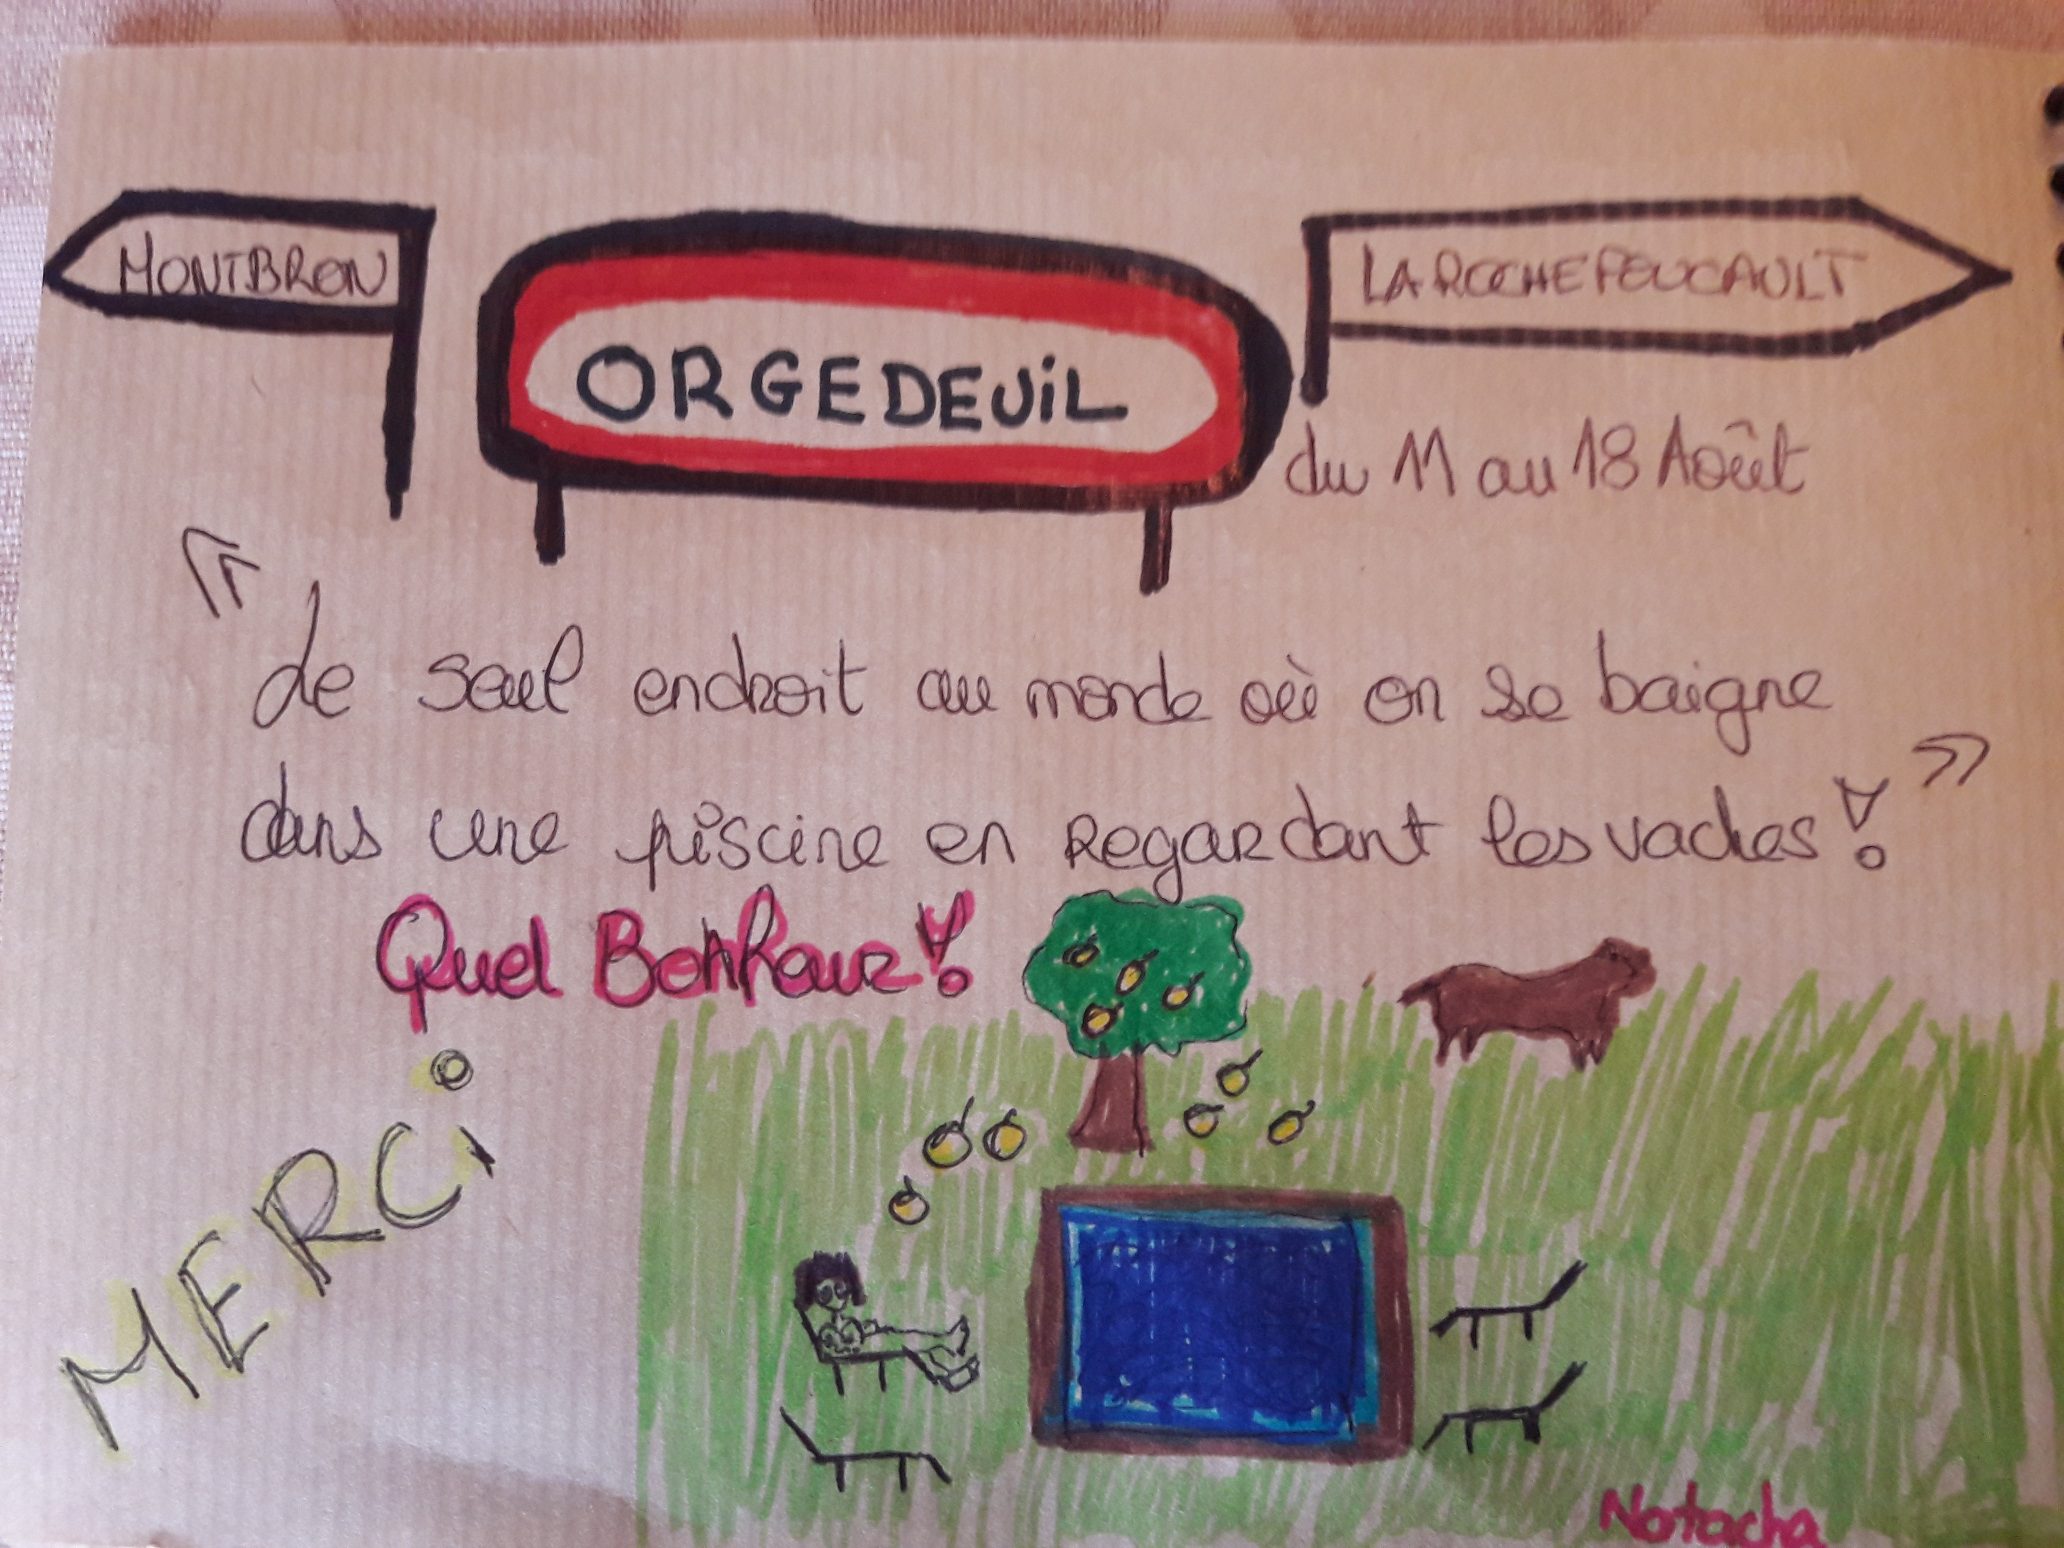 MONTBRON
ORGEDEUIL
LA ROCHEFOUCAULT
du 11 au 18 Août
« Le seul endroit au monde où on se baigne
dans une piscine en regardant les vaches ! »
Quel Bonheur !
MERCi
Natacha